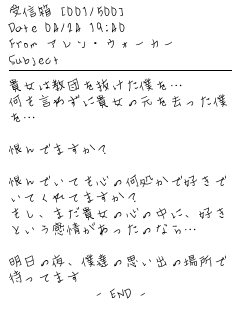 受信箱 [001/500]
Date 04/24 19:40
From アレン・ウォーカー
Subject
貴女は教団を抜けた僕を…
何も言わずに貴女の元を去った僕
を…
恨んでますか?
恨んでいても心の何処かで好きで
いてくれてますか?
もし、まだ貴女の心の中に、好き
という感情があったのなら…
明日の夜、僕達の思い出の場所で
待ってます
- END -